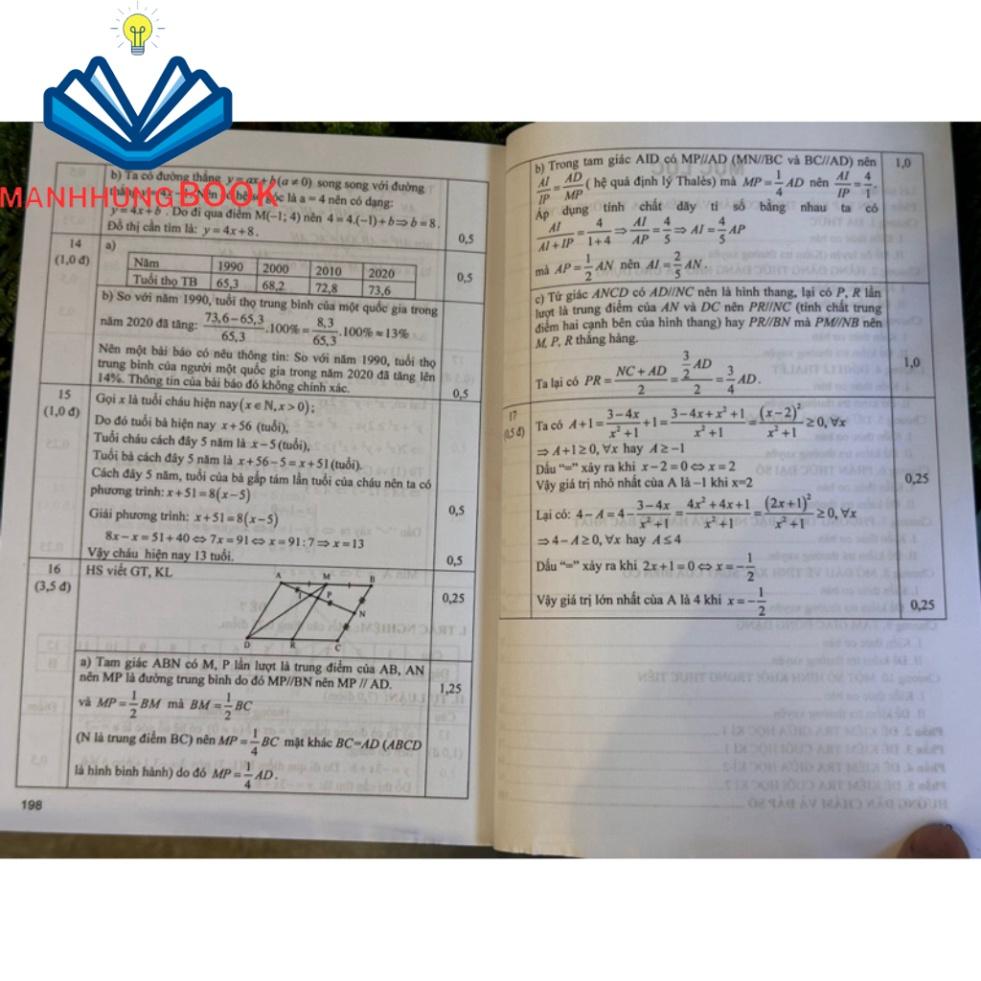 MANHHUNG BOOK
b) Ta có đường thẳng y = ax + b (a ≠ 0) song song với đường
là a = 4 nên có dạng:
y = 4x + b. Do đi qua điểm M(−1; 4) nên 4 = 4.(−1) + b ⇒ b = 8.
Đồ thị cần tìm là: y = 4x + 8.
0,5
14
(1,0 đ)
a)
Năm 1990 2000 2010 2020
Tuổi thọ TB 65,3 68,2 72,8 73,6
0,5
b) So với năm 1990, tuổi thọ trung bình của một quốc gia trong
năm 2020 đã tăng: (73,6−65,3)/65,3 .100% = 8,3/65,3 .100% ≈ 13%
Nên một bài báo có nêu thông tin: So với năm 1990, tuổi thọ
trung bình của người một quốc gia trong năm 2020 đã tăng lên
14%. Thông tin của bài báo đó không chính xác.
0,5
15
(1,0 đ)
Gọi x là tuổi cháu hiện nay (x ∈ N, x > 0);
Do đó tuổi bà hiện nay x + 56 (tuổi),
Tuổi cháu cách đây 5 năm là x − 5 (tuổi),
Tuổi bà cách đây 5 năm là x + 56 − 5 = x + 51 (tuổi).
Cách đây 5 năm, tuổi của bà gấp tám lần tuổi của cháu nên ta có
phương trình: x + 51 = 8(x − 5)
0,5
Giải phương trình: x + 51 = 8(x − 5)
8x − x = 51 + 40 ⇔ 7x = 91 ⇔ x = 91 : 7 ⇒ x = 13
Vậy cháu hiện nay 13 tuổi.
0,5
16
(3,5 đ)
HS viết GT, KL
0,25
A M B
I P N
D R C
a) Tam giác ABN có M, P lần lượt là trung điểm của AB, AN
nên MP là đường trung bình do đó MP//BN nên MP // AD.
1,25
và MP = 1/2 BM mà BM = 1/2 BC
(N là trung điểm BC) nên MP = 1/4 BC mặt khác BC=AD (ABCD
là hình bình hành) do đó MP = 1/4 AD.
198
b) Trong tam giác AID có MP//AD (MN//BC và BC//AD) nên
1,0
AI/IP = AD/MP ( hệ quả định lý Thalès) mà MP = 1/4 AD nên AI/IP = 4/1.
Áp dụng tính chất dãy tỉ số bằng nhau ta có
AI/(AI + IP) = 4/(1+4) ⇒ AI/AP = 4/5 ⇒ AI = 4/5 AP
mà AP = 1/2 AN nên AI = 2/5 AN.
c) Tứ giác ANCD có AD//NC nên là hình thang, lại có P, R lần
lượt là trung điểm của AN và DC nên PR//NC (tính chất trung
điểm hai cạnh bên của hình thang) hay PR//BN mà PM//NB nên
M, P, R thẳng hàng.
Ta lại có PR = (NC + AD)/2 = (3/2 AD)/2 = 3/4 AD.
1,0
17
(0,5 đ)
Ta có A + 1 = (3−4x)/(x²+1) + 1 = (3−4x+x²+1)/(x²+1) = (x−2)²/(x²+1) ≥ 0, ∀x
⇒ A + 1 ≥ 0, ∀x hay A ≥ −1
Dấu "=" xảy ra khi x − 2 = 0 ⇔ x = 2
Vậy giá trị nhỏ nhất của A là −1 khi x=2
0,25
Lại có: 4 − A = 4 − (3−4x)/(x²+1) = (4x²+4x+1)/(x²+1) = (2x+1)²/(x²+1) ≥ 0, ∀x
⇒ 4 − A ≥ 0, ∀x hay A ≤ 4
Dấu "=" xảy ra khi 2x + 1 = 0 ⇔ x = −1/2
Vậy giá trị lớn nhất của A là 4 khi x = −1/2
0,25